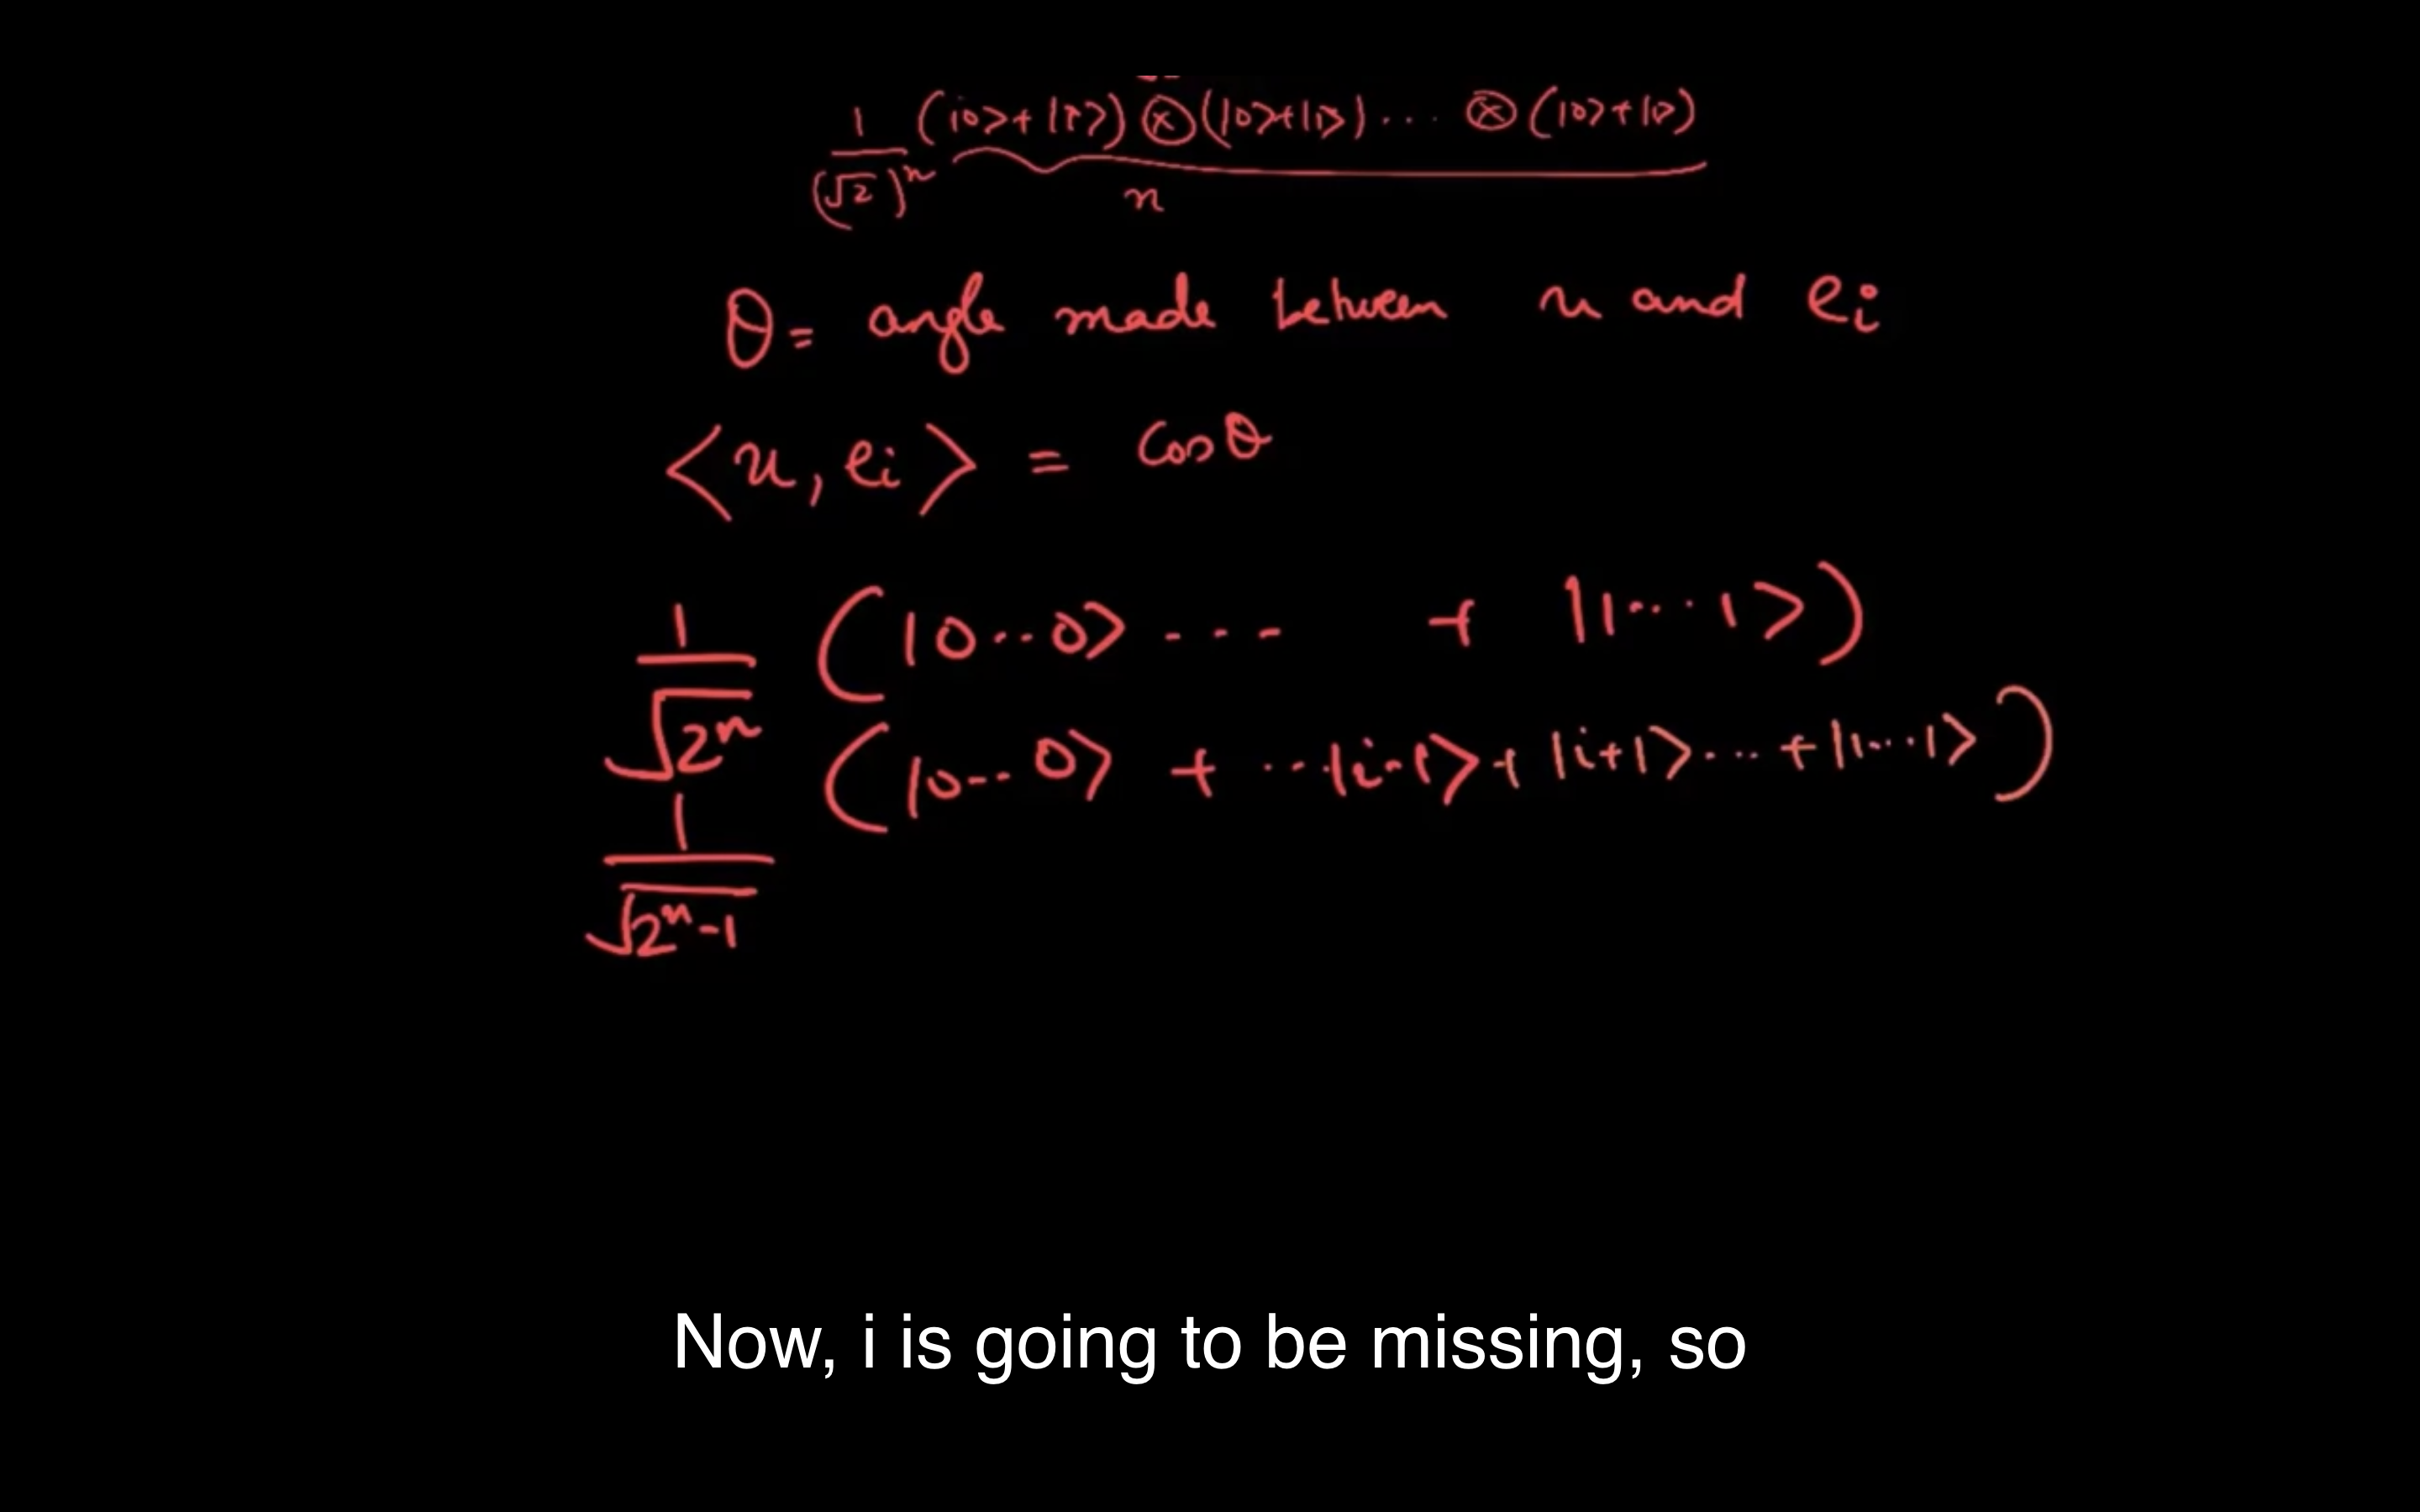 1/(√2)ⁿ (|0>+|1>) ⊗ (|0>+|1>) ... ⊗ (|0>+|1>)
n
θ = angle made between u and eᵢ
<u, eᵢ> = cosθ
1/√2ⁿ (|0..0> --- + |1...1>)
1/√2ⁿ-1 (|0--0> + ...|i-1> + |i+1> ... + |1...1>)
Now, i is going to be missing, so